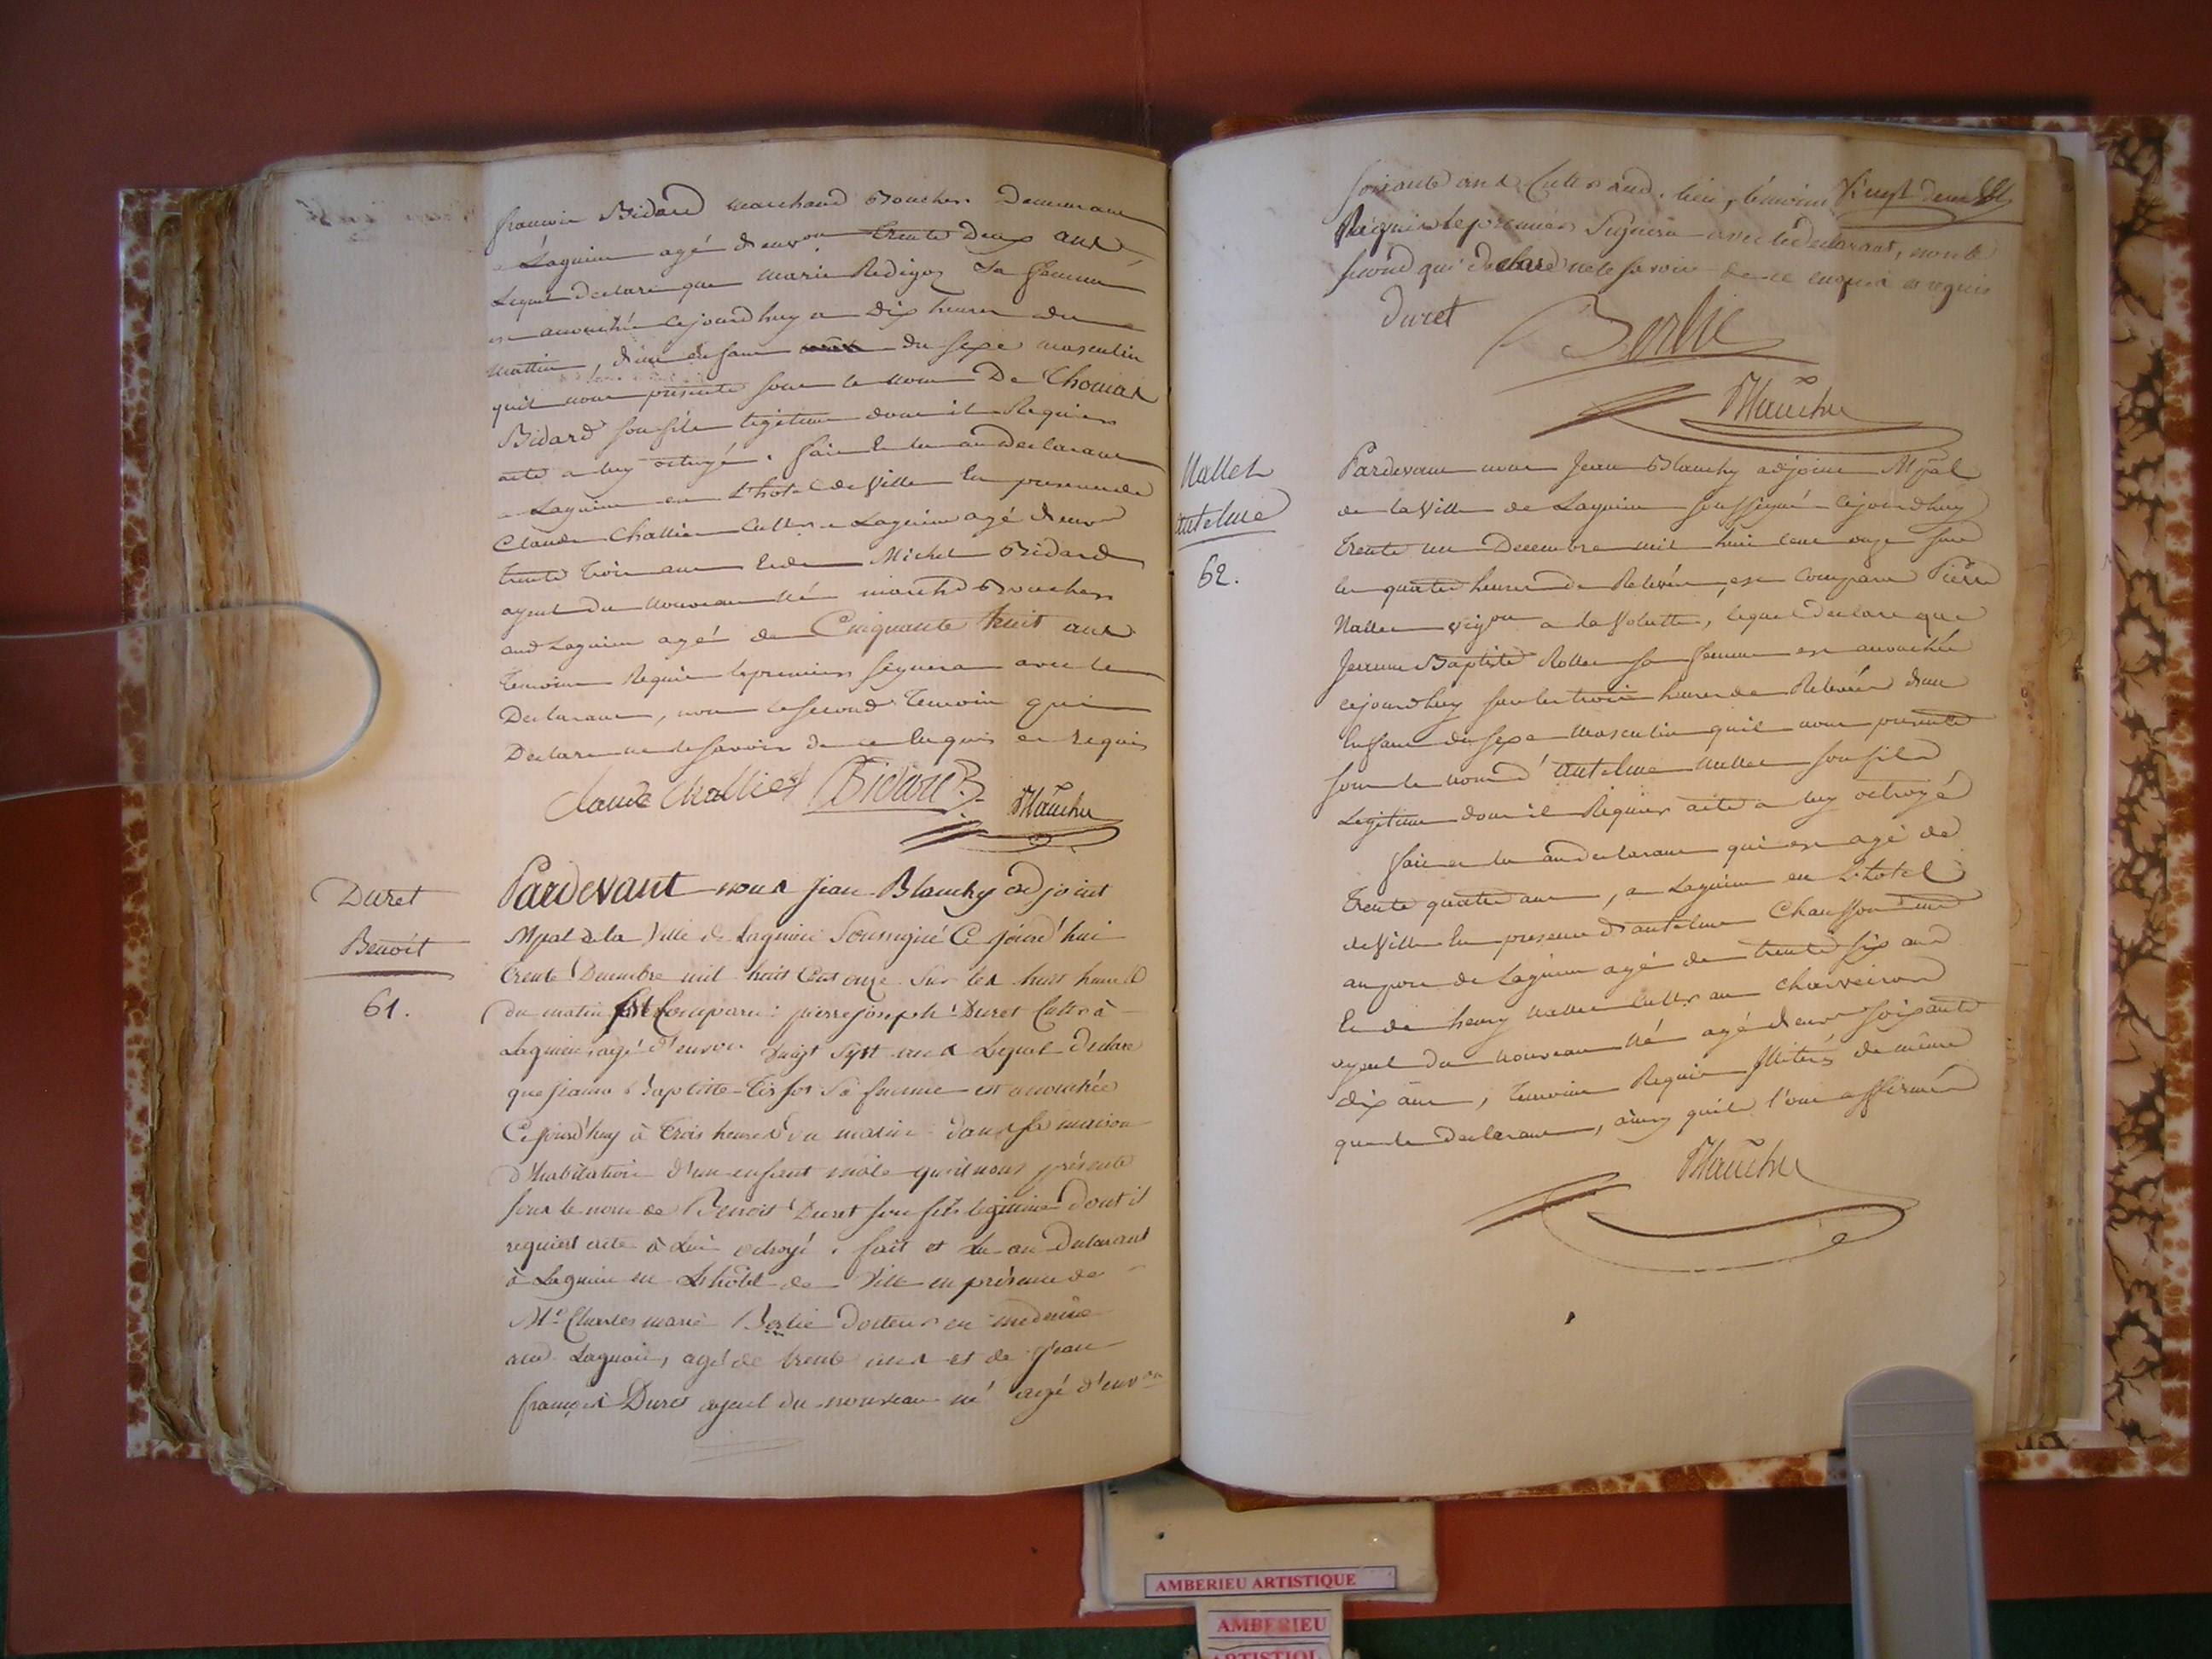 françois Bidard marchand Boucher Demeurant
a Lagnieu agé d'environ trente Deux ans
Lequel declare que marie Rediger Sa femme
est accouchée cejourdhuy a Dix heures du
mattin, d'un enfant du sexe masculin
quil nous presente sous le nom De Thomas
Bidard son fils legitime dont il Requiers
acte a luy octroyé. fait & lu au Declarant
a Lagnieu en L'hotel de Ville En presence de
Claude Challier Cultr a Lagnieu agé d'envon
trente trois ans & de Michel Bidard
ayeul du nouveau Né marchd Boucher
aud Lagnieu agé de Cinquante huit ans
temoins Requis le premier signera avec le
Declarant, non le second temoin qui
Declare ne le savoir de ce Enquis et requis
Claude Challier Bidard Blanchy
Duret
Benoît
61.
Pardevant nous Jean Blanchy adjoint
Mpal de la Ville de Lagnieu Soussigné Ce jourd'hui
trente Decembre mil huit Cent onze Sur les huit heures
du matin Est Comparu : pierre joseph Duret Cultr à
Lagnieu agé d'environ vingt sept ans Lequel declare
que Baptiste Sa femme est accouchée
Cejourd'huy à trois heures du matin dans sa maison
d'habitation d'un enfant mâle qu'il nous présente
sous le nom de Benoit Duret son fils legitime dont il
requiert acte à Lui octroyé. fait et Lu au Declarant
à Lagnieu en Lhôtel de Ville en présence de
Mr Charles marie Berlie Docteur en medecine
aud. Lagnieu, agé de trente ans et de jean
françois Duret ayeul du nouveau né agé d'envon
soixante ans Cultr aud. lieu, témoins
Requis le premier Signera avec le declarant, non le
second qui declare ne le savoir de ce enquis et requis
Duret Berlie
Blanchy
Nallet
antelme
62.
Pardevant nous Jean Blanchy adjoint Mpal
de la Ville de Lagnieu soussigné cejourdhuy
trente un Decembre mil huit cent onze sur
les quatre heures de Relevée, est Comparu Pierre
Nallet vigon a la Volette, lequel declare que
Jeanne Baptiste Rollet sa femme est accouchée
cejourdhuy sur les trois heures de Relevée d'un
Enfant du sexe masculin quil nous presente
sous le nom d'antelme Nallet son fils
Legitime dont il Requier acte a luy octroyé
fait & lu au declarant qui est agé de
trente quatre ans, a Lagnieu en L'hotel
de Ville En presence d'antelme
au port de Lagnieu agé de trente six ans
& de henry Nallet Cultr au
ayeul du nouveau Né agé d'envon soixante
dix ans, temoins Requis illiterés de même
que le Declarant, ainsy quils l'ont affirmé
Blanchy
AMBERIEU ARTISTIQUE
AMBERIEU